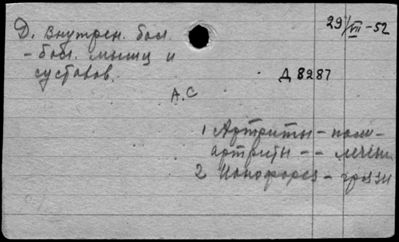 29/VII-52
Д. Внутрен. бол.
- бол. мышц и
суставов.
Д 8287
А.С
1 Артриты - поли-
артриты -- лечен
2 Ионофорез - грязи